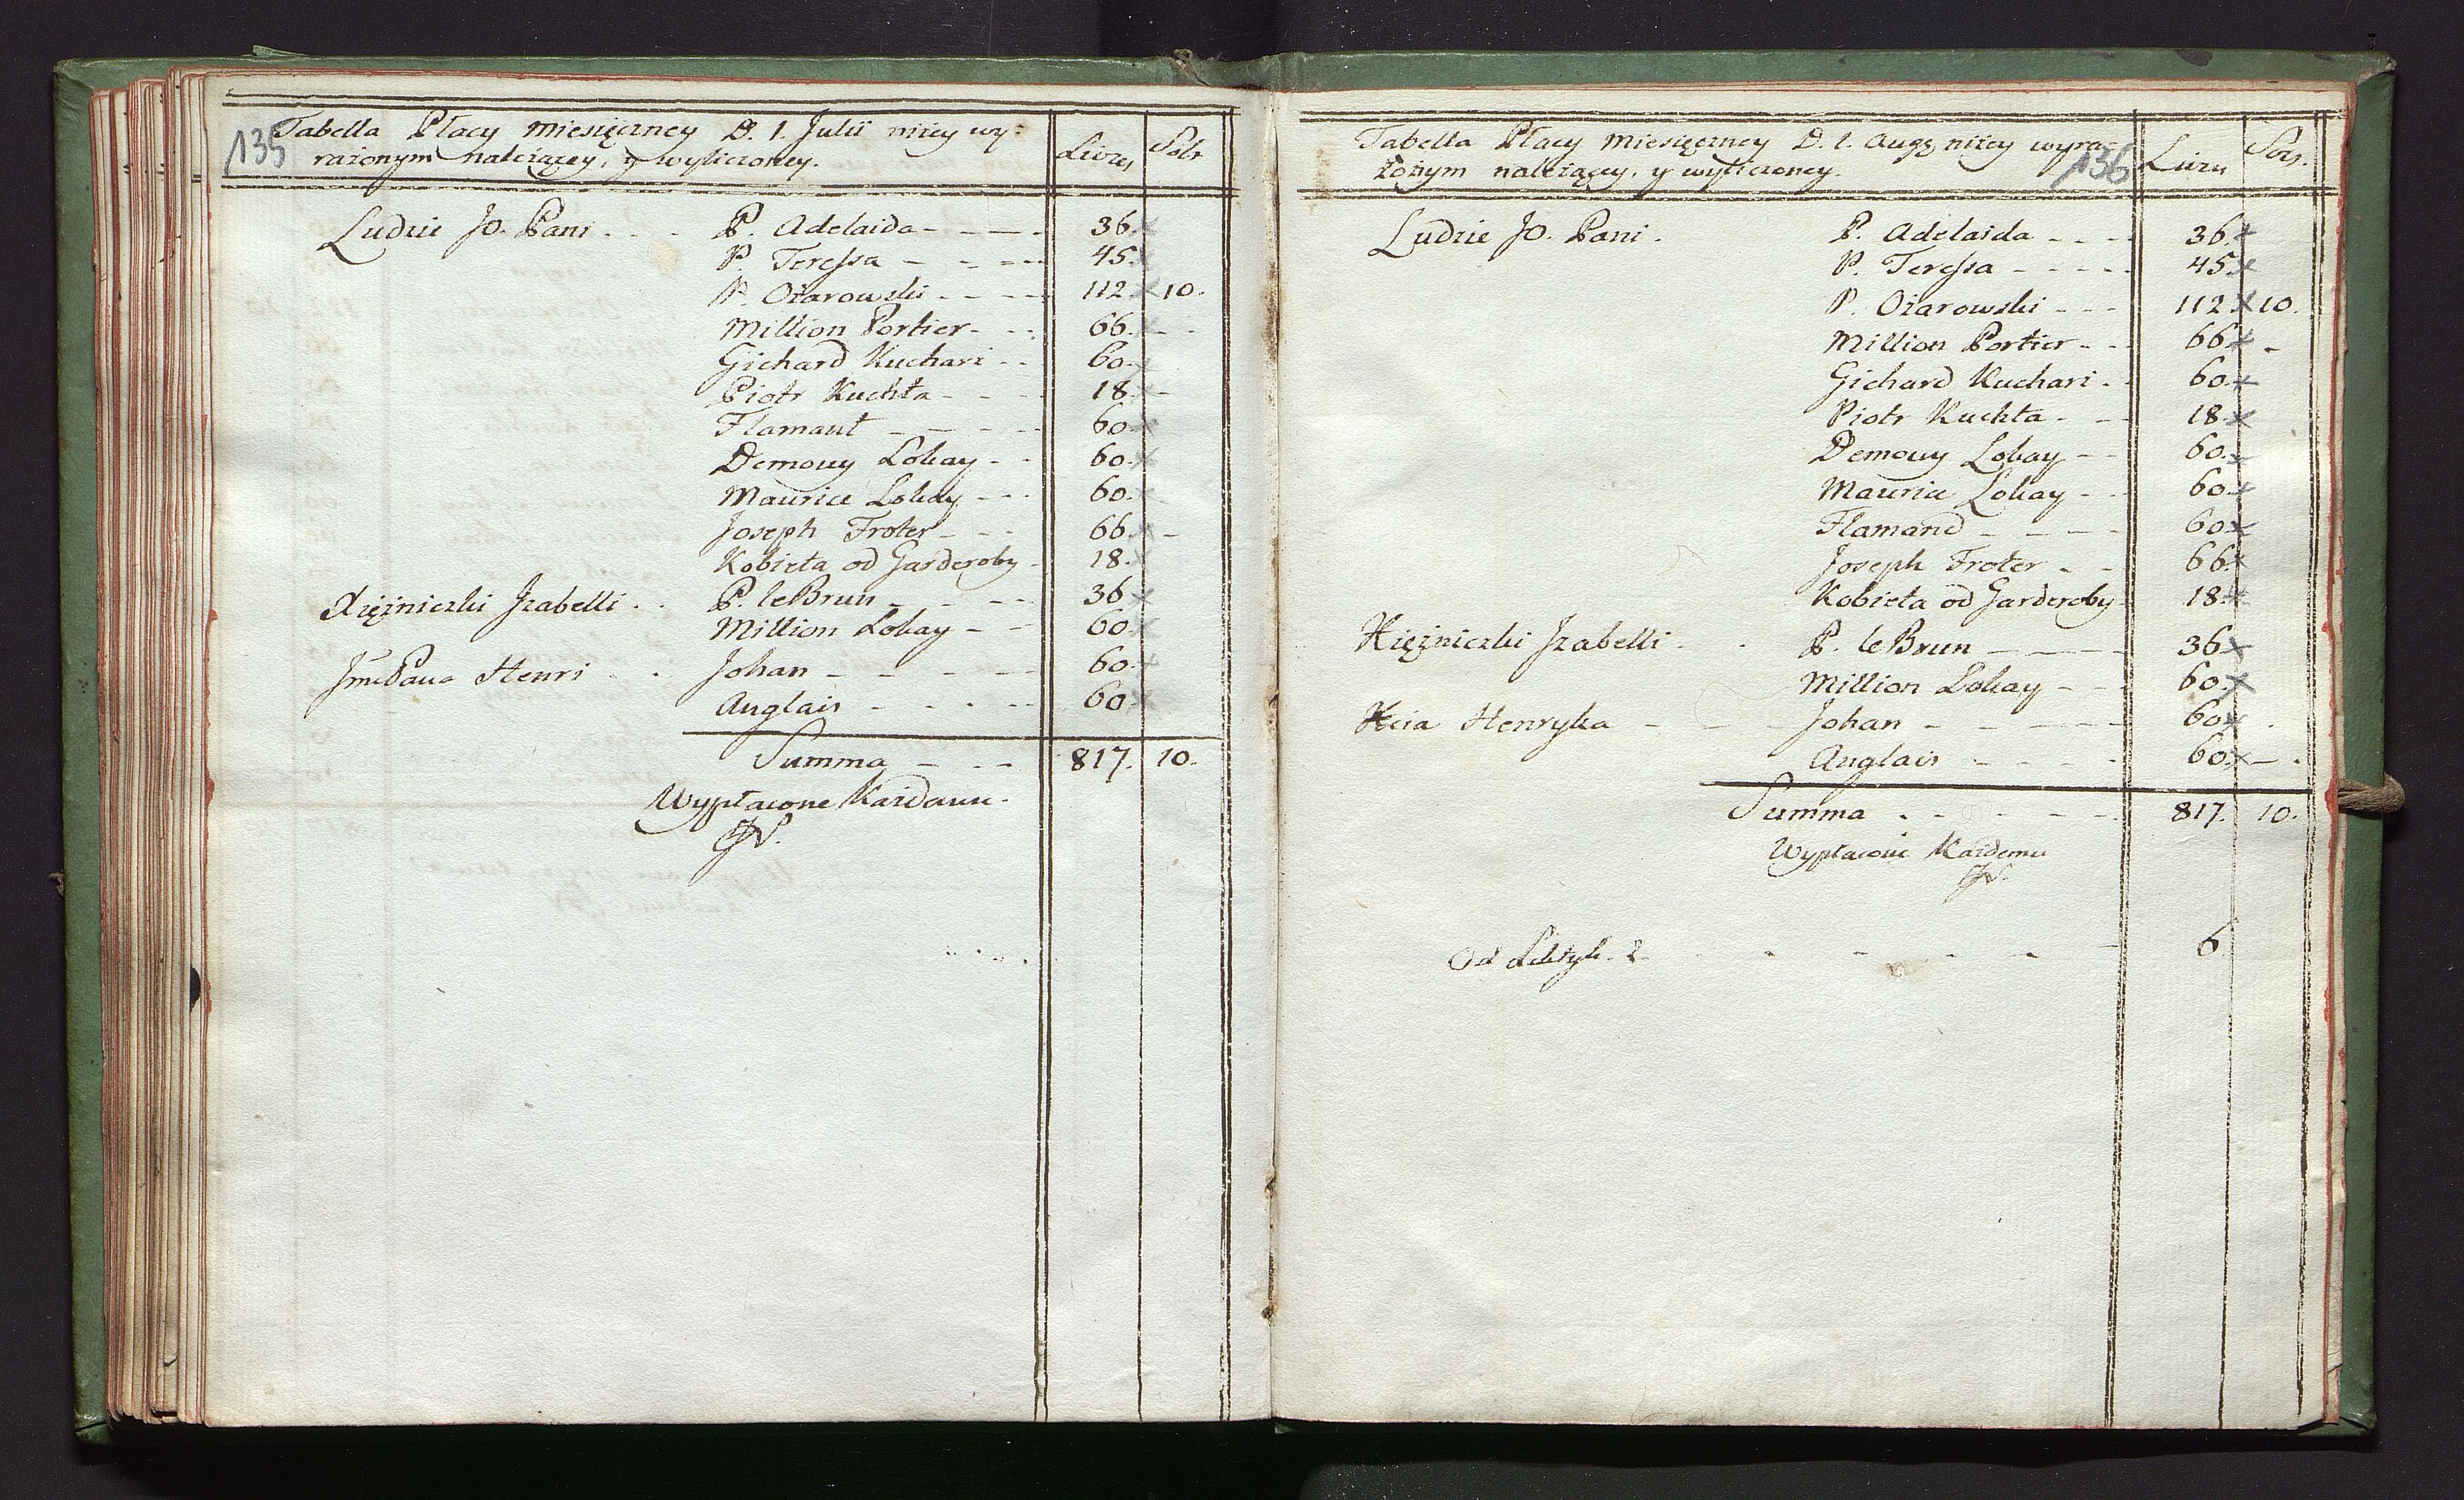 135
Tabella Płacy miesięczney D. 1. Julii niżey wy-
rażonym należącey, y wyliczoney.
Livres
Sols
Ludzie JO. Pani . . . P. Adelaida - - - - 36.
P. Teressa - - - - 45.
P. Ożarowski - - - - 112 10.
Million Portier - - - 66. -
Gichard Kucharz - - 60.
Piotr Kuchta - - - 18. -
Flamant - - - - 60.
Demouy Lokay - - 60.
Maurice Lokay - - - 60.
Joseph Froter - - - 66. -
Kobieta od Garderoby - 18.
Xiężniczki Jzabelli . . P. leBrun - - - - 36
Million Lokay - - 60.
Henri . . Johan - - - - 60.
Anglais - - - - 60.
Summa - - - 817. 10.
Wypłacone Każdemu.
136
Tabella Płacy Miesięczney D. 1. Aug niżey wyra-
żonym należącey, y wyliczoney.
Livres
Sols.
Ludzie JO. Pani . P. Adelaida - - - 36.
P. Teressa - - - - - 45.
P. Ożarowski - - - 112 10.
Million Portier - - - 66. -
Gichard Kucharz - - 60.
Piotr Kuchta - - - 18.
Demouy Lokay - - 60.
Maurice Lokay - - 60.
Flamand - - - - 60.
Joseph Froter - - 66.
Kobieta od Garderoby 18.
Xiężniczki Jzabelli . . P. leBrun - - - - 36.
Million Lokay - - - 60.
Xcia Henryka - - - Johan - - - - 60. .
Anglais - - - - 60. - .
Summa - - - - - 817. 10.
Wypłacone Każdemu
Od 2 - - - - - 6.